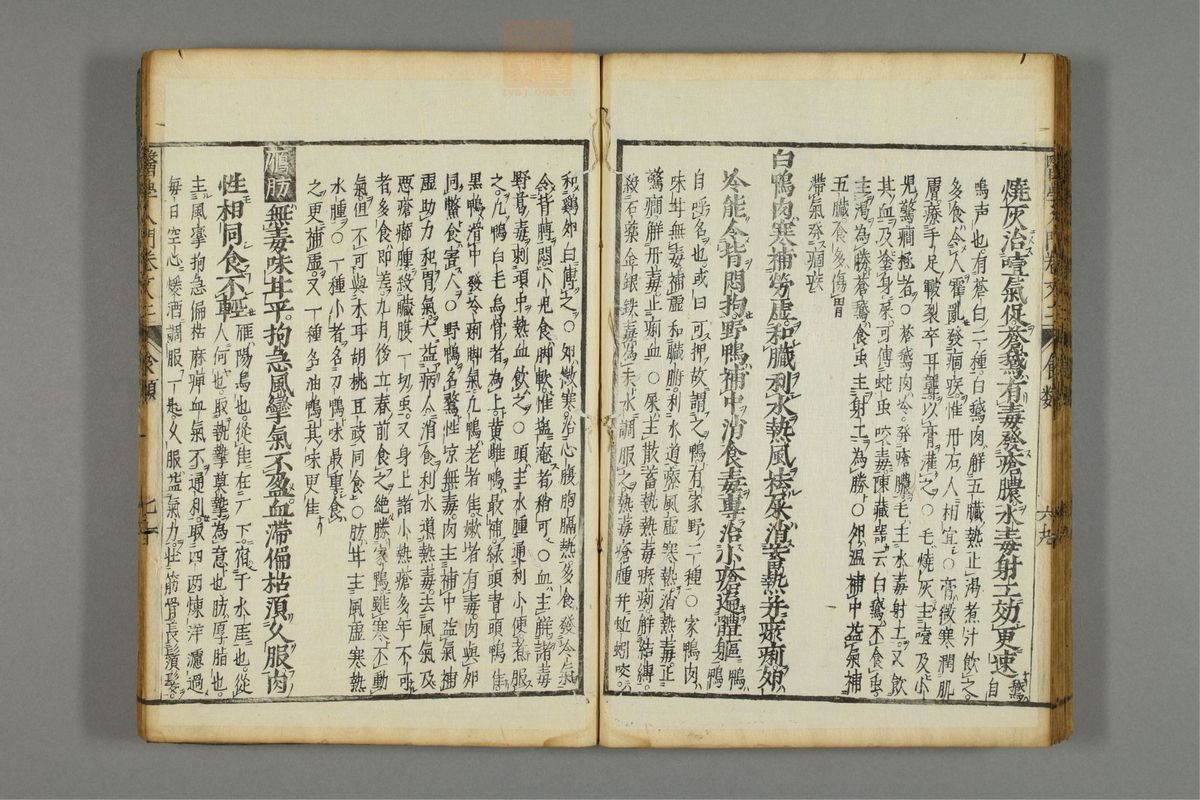 燒灰治噎氣促蒼鵞有毒發瘡膿水毒射工効更速 鵞自
鳴声也有蒼白二種白鵞肉解五臓熱止渴煮汁飲之
多食令人霍亂發痼疾惟丹石人相宜○膏微寒潤肌
膚療手足皸裂卒耳聾以膏灌之○毛燒灰主噎及小
児驚癇極者○蒼鵞肉冷發瘡膿毛主水毒射工又飲
其血及塗身屎可傅蛇虫咬毒陳藏器云白鵞不食虫
主渴為勝蒼鵞食虫主射工為勝○卵温補中益氣補
五臓食多傷胃
滯氣發痼疾
白鴨肉寒補勞虚和臓利水熱風袪屎消蓄熱并瘀痢卵
冷能令背悶拘野鴨補中消食毒專治小瘡遍體軀 鴨鴨
自呼名也或曰可押故謂之鴨有家野二種○家鴨肉
味甘無毒補虚和臓腑利水道療風虚寒熱消熱毒止
驚癇解丹毒止痢血○屎主散蓄熱熱毒瘀痢解結縛
殺石藥金銀鉄毒為末水調服之熱毒瘡腫并蚯蚓咬
和鷄卵白傅之○卵微寒治心腹胸膈熱多食發冷氣
令背膊悶小児食脚軟惟塩淹者稍可○血主解諸毒
野葛毒刺頭中熱血飲之○頭主水腫通利小便煮服
之凡鴨白毛烏骨者為上黄雌鴨最補緑頭青頭鴨佳
黒鴨滑中發冷痢脚氣凡鴨老者佳嫩者有毒肉與卵
同鱉食害人○野鴨名鶩性凉無毒肉主補中益氣補
虚助力和胃氣大益病人消食利水道熱毒去風氣及
悪瘡癤腫殺臓腹一切虫又身上諸小熱瘡多年不可
者多食即差九月後立春前食之絶勝家鴨雖寒不動
氣但不可與木耳胡桃豆豉同食○肪甘主風虚寒熱
水腫○一種小者名刀鴨味最重食
之更補虚又一種名油鴨其味更佳
鴈肪無毒味甘平拘急風攣氣不盈血滯偏枯湏久服肉
性相同食不輕 雁陽鳥也從隹在厂下宿于水厓也從
人何也取執摯莫摯為意也肪厚脂也
主風攣拘急偏枯麻痺血氣不通利取四两煉洋濾過
每日空心煖酒調服一匙久服益氣力壮筋骨長鬚髮
醫學入門卷文二 食類 七
六九